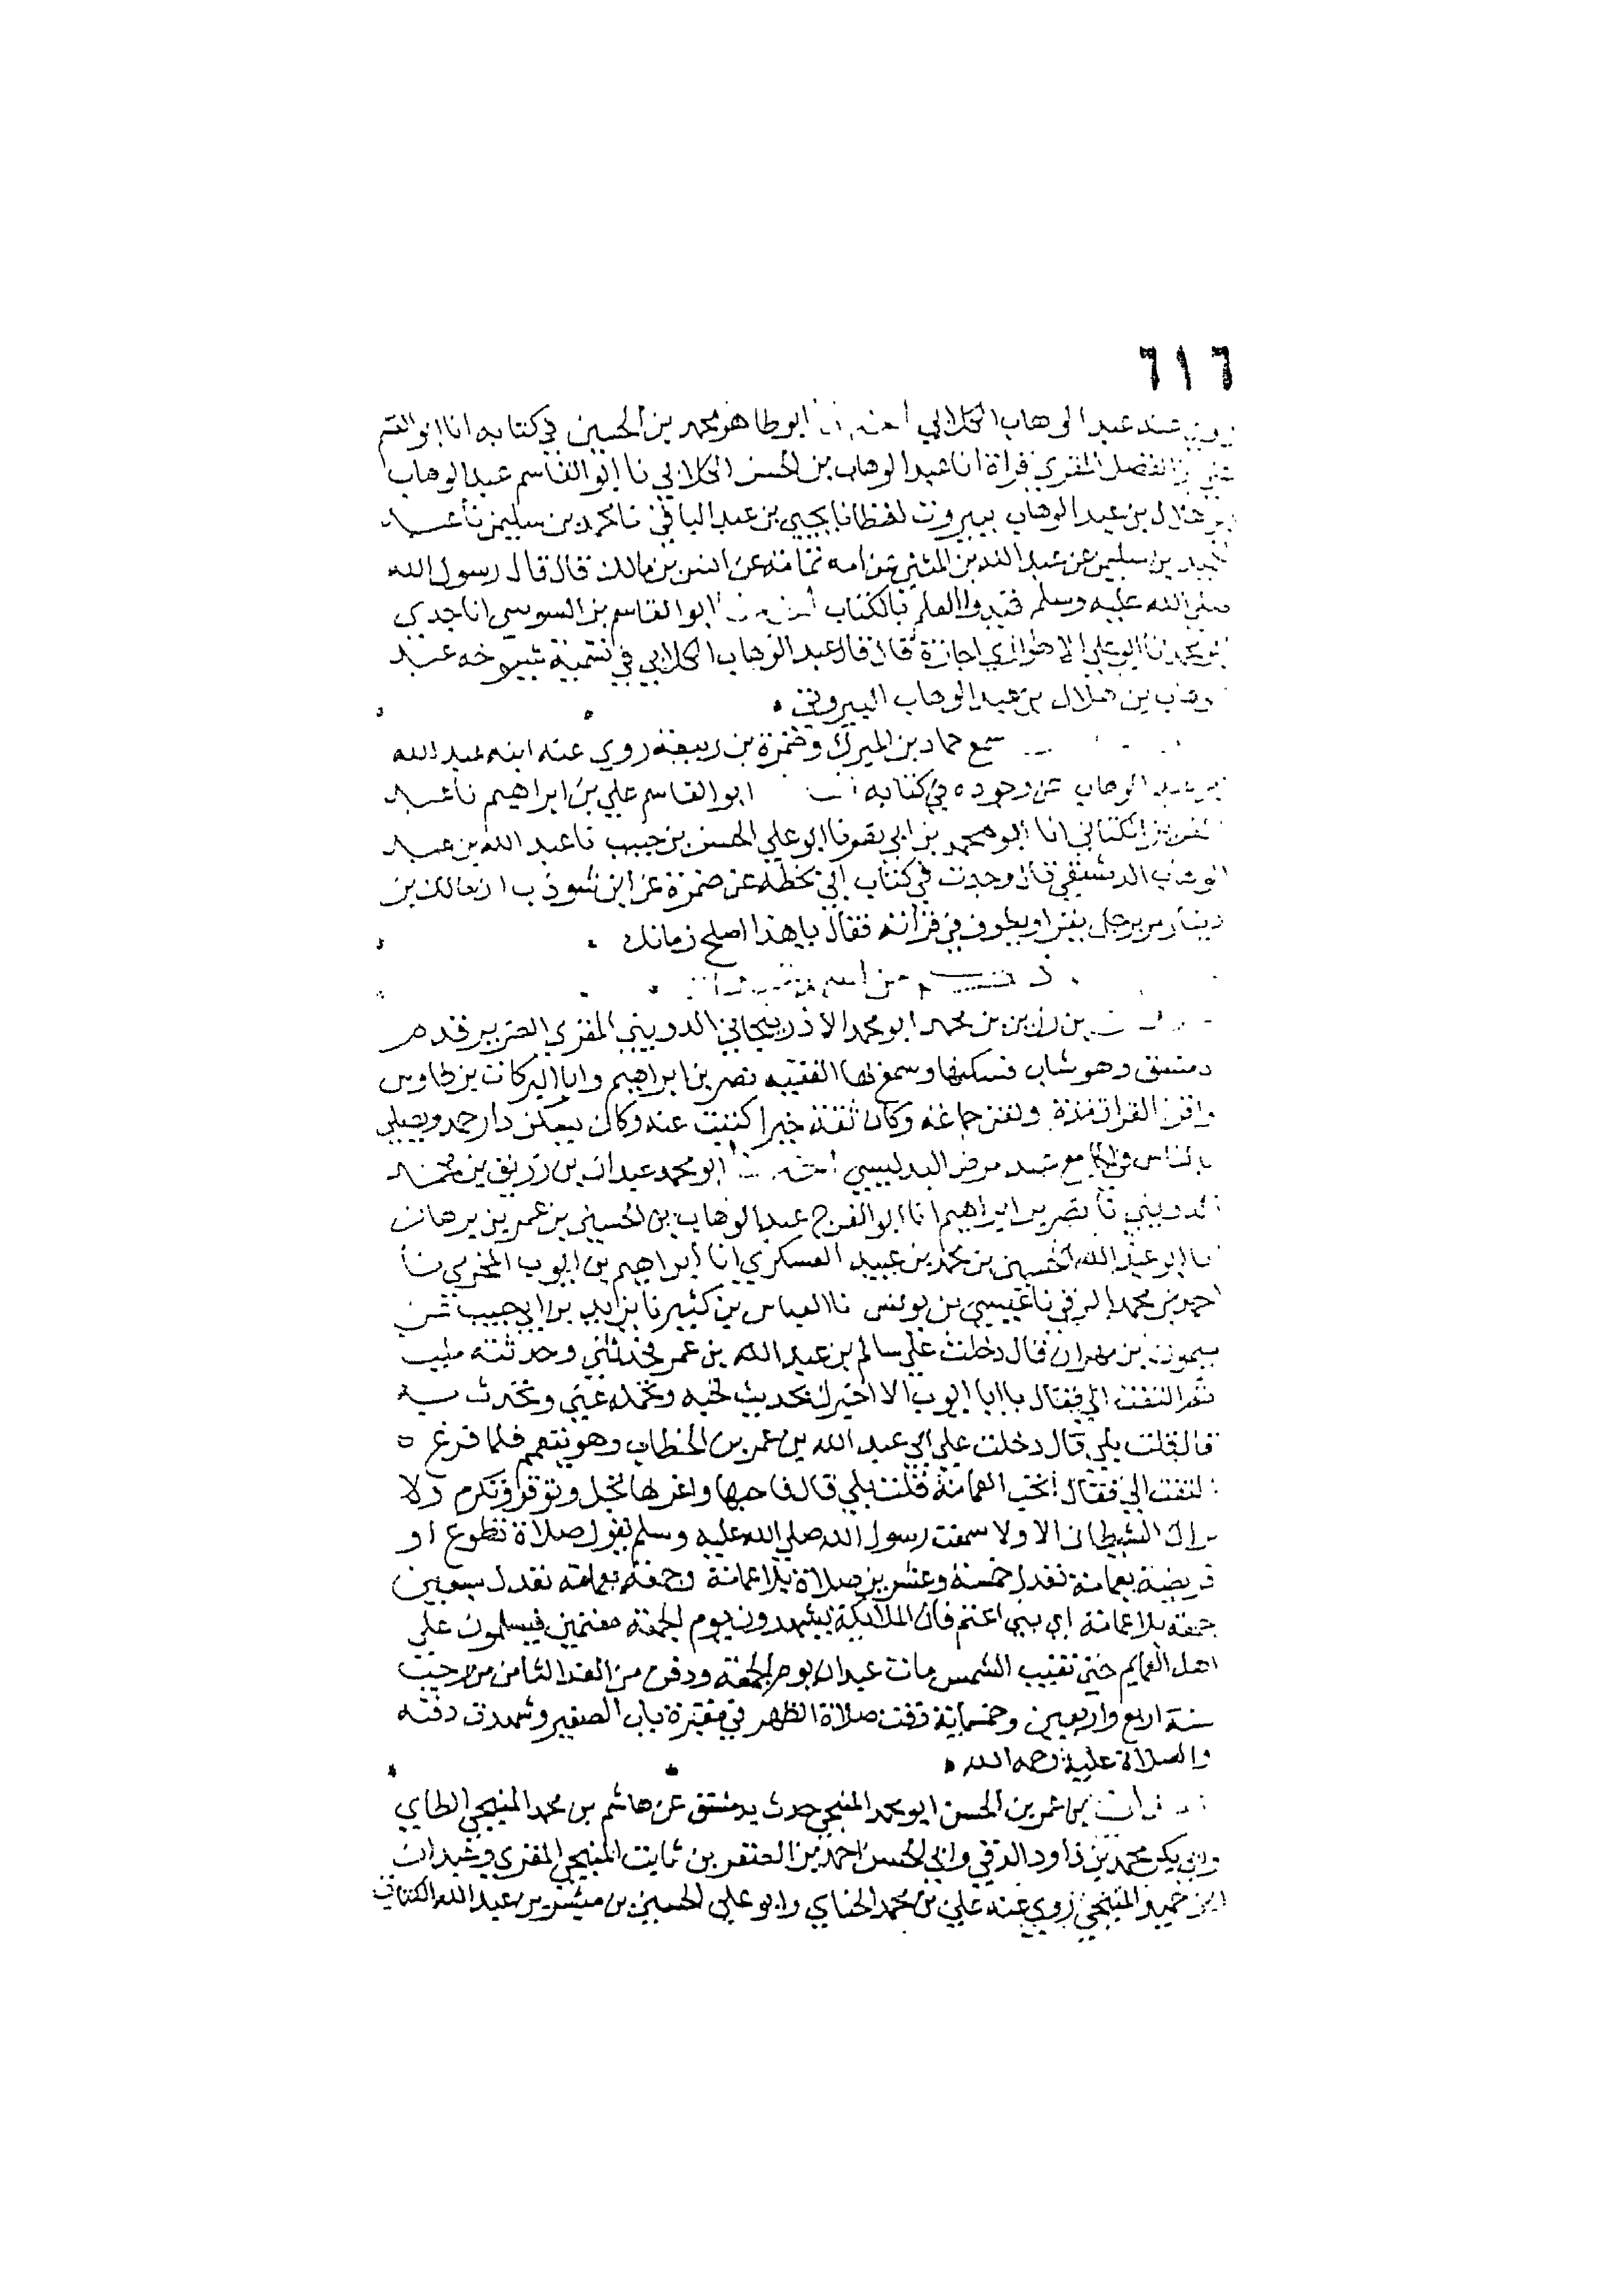 ٦١٦
عنه عبد الوهاب الكلابي ابو طاهر محمد بن الحسين في كتابه انا ابو القسم
بن الفضل المقري قراة انا عبد الوهاب بن الحسن الكلابي نا ابو القاسم عبد الوهاب
بن هلال بن عبد الوهاب ببيروت لفظا نا يحيى بن عبد الباقي نا محمد بن سليمن نا عبد
الحميد بن سليمن عن عبد الله بن المثنى عن امه ثمامة عن انس بن مالك قال قال رسول الله
صلى الله عليه وسلم قيدوا العلم بالكتاب ابو القاسم بن السوسي انا جدي
ابو محمد نا ابو علي الاهوازي اجازة قال قال عبد الوهاب الكلابي في تسمية شيوخه عبد
الوهاب بن هلال بن عبد الوهاب البيروتي
سمع حماد بن المبرك وضمرة بن ربيعة روي عنه ابنه عبد الله
بن عبد الوهاب عن وجوده في كتابه ابو القاسم علي بن ابراهيم نا عبد
العزيز الكتاني انا ابو محمد بن ابي نصر نا ابو علي الحسن بن حبيب نا عبد الله بن عبد
الوهاب الدمشقي قال وجدت في كتاب ابي بخطه عن ضمرة عن ابن شوذب ان مالك بن
دينار مر برجل يقرا ويطرف في قراته فقال يا هذا اصلح زمانك
ذكر من اسمه
بن رزين بن محمد ابو محمد الاذربيجاني الدويني المقري الضرير قدم
دمشق وهو شاب فسكنها وسمع بها الفقيه نصر بن ابراهيم وابا البركات بن طاوس
واقرا القران مدة ولقن جماعة وكان ثقة خيرا كتبت عنه وكان يسكن دار حمد ويصلي
بالناس في الجامع عند مرض البدليسي ابو محمد عبدان بن رزين بن محمد
الدويني نا نصر بن ابراهيم انا ابو الفرج عبد الوهاب بن الحسين بن عمر بن برهان
نا ابو عبد الله الحسين بن محمد بن عبيد العسكري انا ابراهيم بن ايوب المخرمي نا
احمد بن محمد البرقي نا عيسي بن يونس نا العباس بن كثير نا يزيد بن ابي حبيب عن
ميمون بن مهران قال دخلت علي سالم بن عبد الله بن عمر فحدثني وحدثته مليا
ثم التفت الي فقال يا ابا ايوب الا اخبرك بحديث تحبه وتحمله عني وتحدث به
قال قلت بلى قال دخلت علي ابي عبد الله بن عمر بن الخطاب وهو يتعمم فلما فرغ
التفت الي فقال اتحب العمامة قلت بلى قال فاحبها واعزها تجل وتوقر وتكرم ولا
يراك الشيطان الا ولا سمعت رسول الله صلي الله عليه وسلم يقول صلاة تطوع او
فريضة بعمامة تعدل خمسة وعشرين صلاة بلا عمامة وجمعة بعمامة تعدل سبعين
جمعة بلا عمامة اي بني اعتم فان الملايكة يشهدون يوم الجمعة معتمين فيسلمون على
اهل العمايم حتى تغيب الشمس مات عبدان يوم الجمعة ودفن من الغد الثامن من رجب
سنة اربع واربعين وخمسماية وقت صلاة الظهر في مقبرة باب الصغير وشهدت دفنه
والصلاة عليه رحمه الله
بن عمر بن الحسن ابو محمد المنبجي حدث بدمشق عن هاشم بن محمد المنبجي الطاي
وابي بكر محمد بن داود الدقي وابي الحسن احمد بن الصقر بن ثابت المنبجي المقري وعبدان
ابن حميد المنبجي روي عنه علي بن محمد الحناي وابو علي الحسين بن مبشر بن عبد الله الكتاني